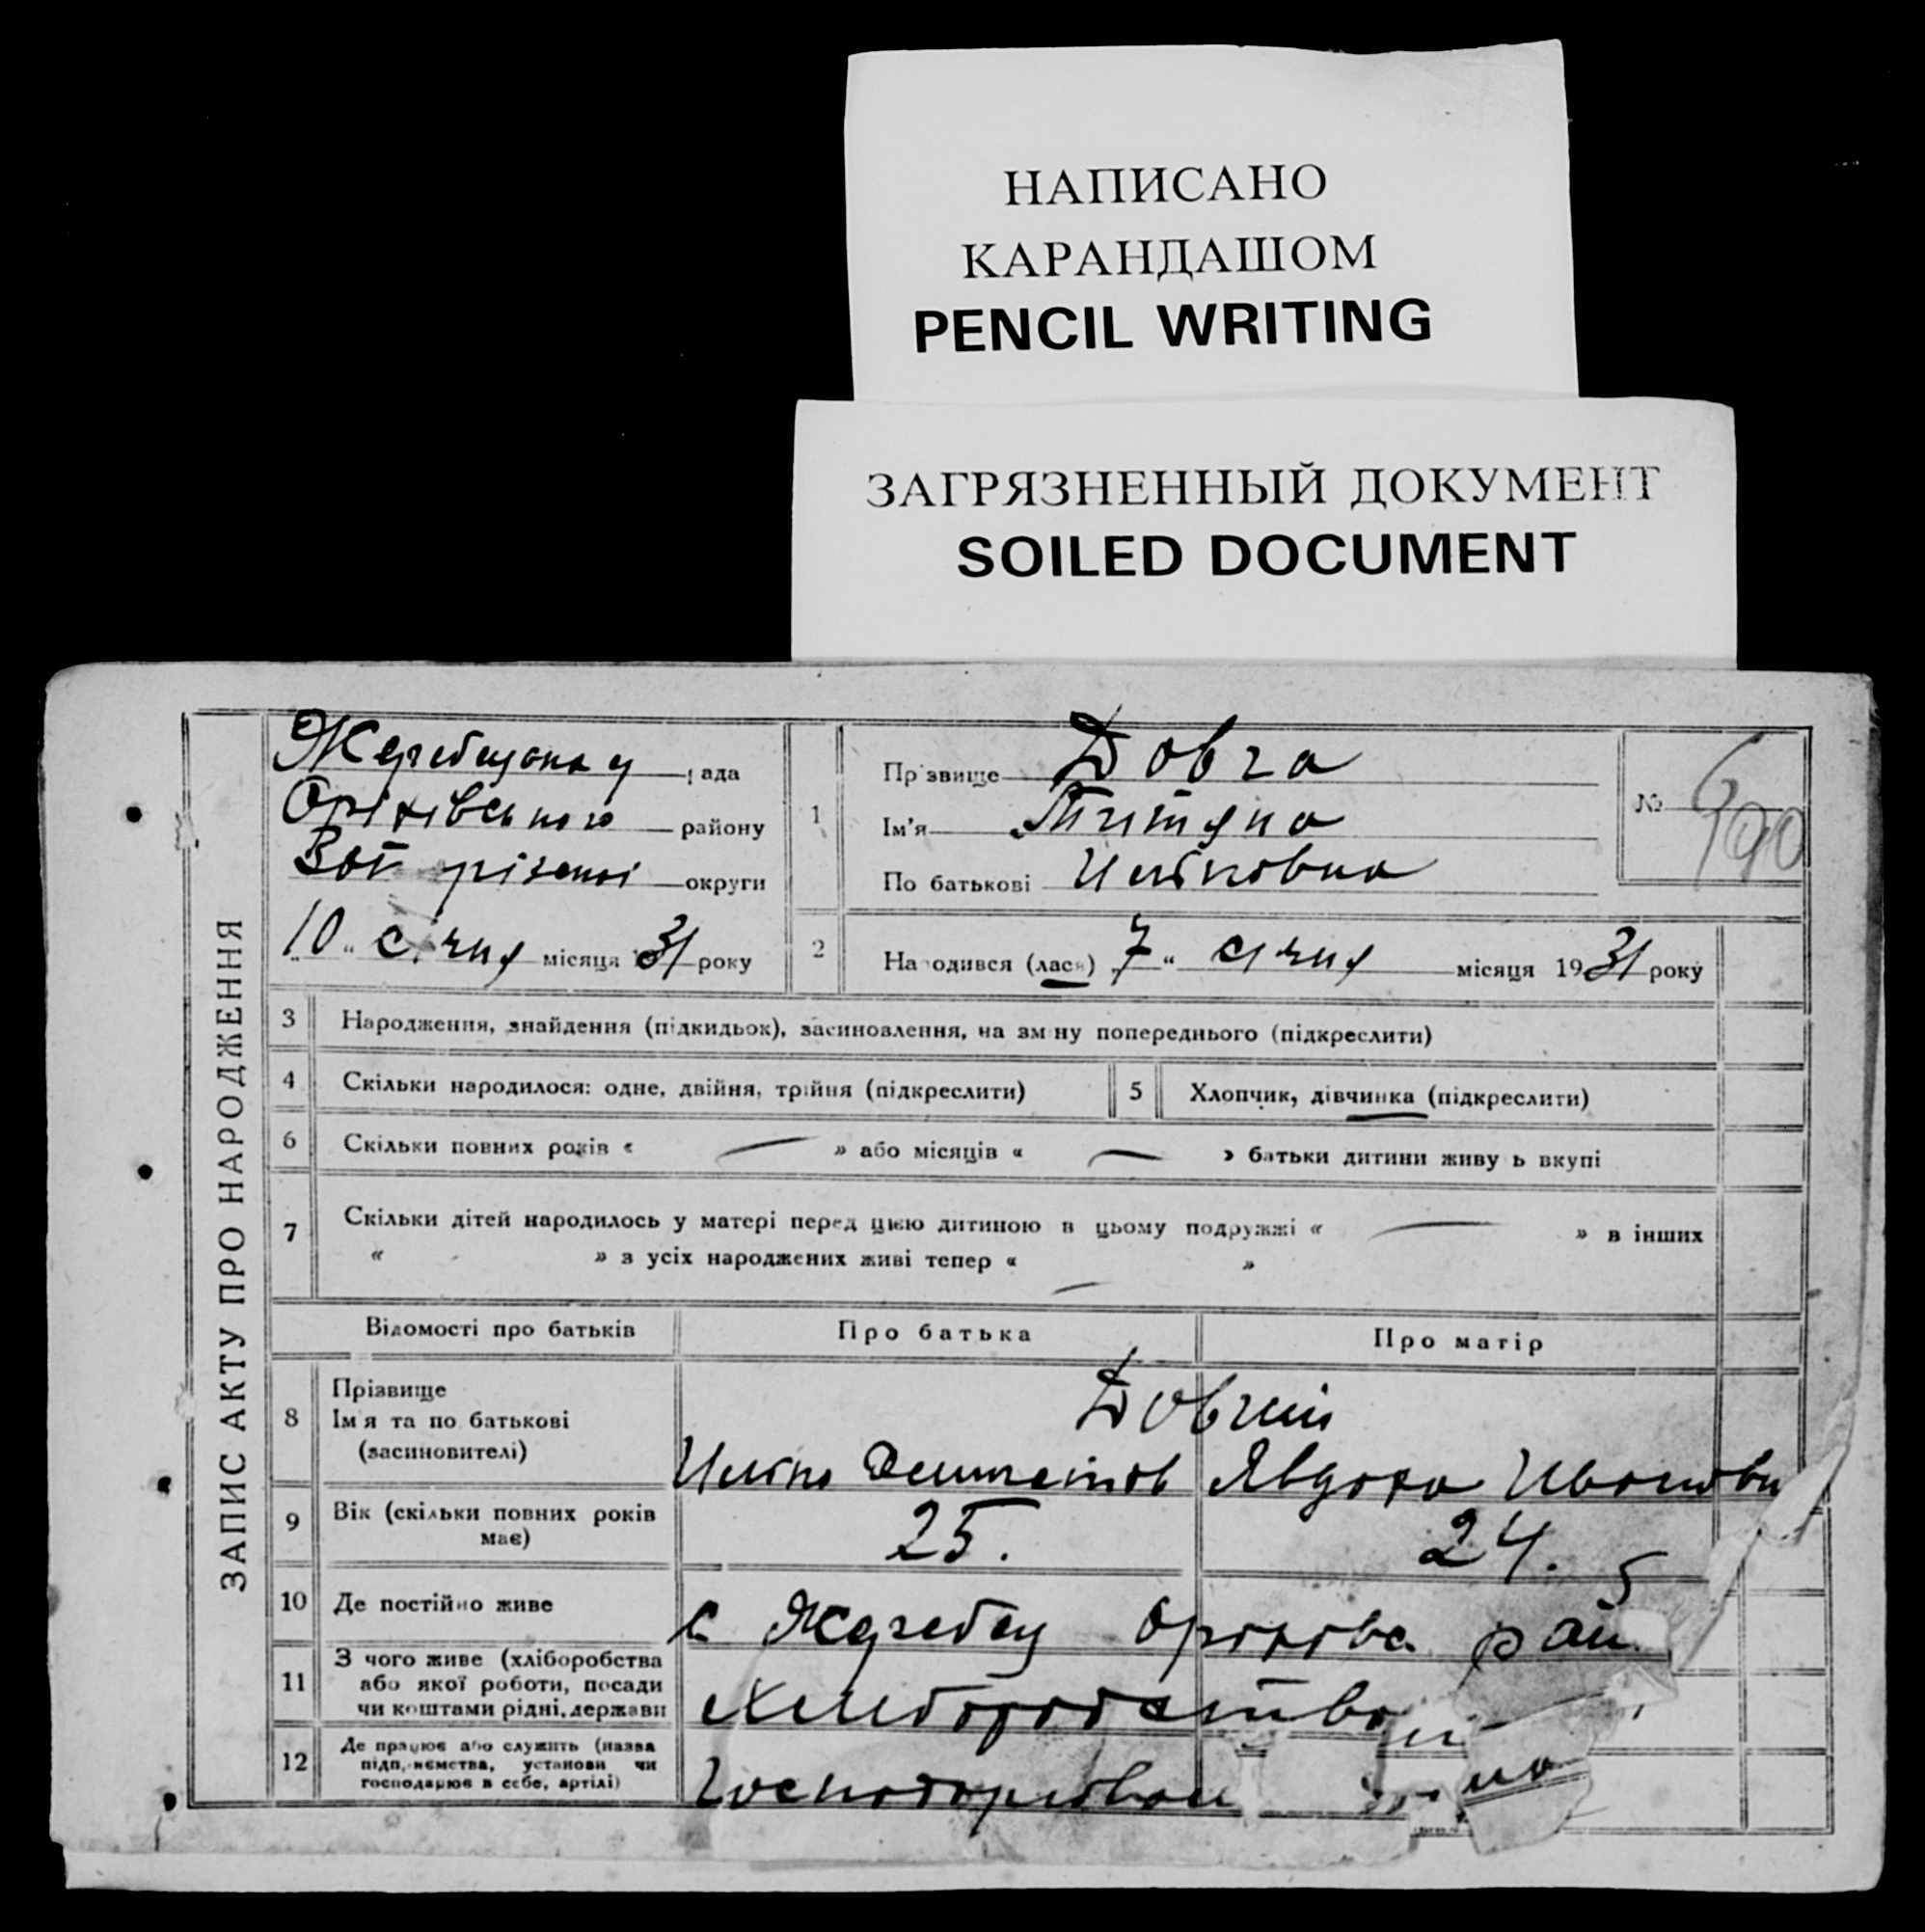 НАПИСАНО
КАРАНДАШОМ
PENCIL WRITING
ЗАГРЯЗНЕННЫЙ ДОКУМЕНТ
SOILED DOCUMENT
ЗАПИС АКТУ ПРО НАРОДЖЕННЯ
рада
Оріхівського району
округи
"10" січня місяця 31 року
1
Прізвище Довга
Ім'я Титяна
По батькові
№
2
Народився (лася) "7" січня місяця 1931 року
3 Народження, знайдення (підкидьок), засиновлення, на зміну попереднього (підкреслити)
4 Скільки народилося: одне, двійня, трійня (підкреслити)
5 Хлопчик, дівчинка (підкреслити)
6 Скільки повних років « — » або місяців « — » батьки дитини живуть вкупі
7 Скільки дітей народилось у матері перед цією дитиною в цьому подружжі « — » в інших
« » з усіх народжених живі тепер « — »
Відомості про батьків
Про батька
Про матір
8 Прізвище
Ім'я та по батькові
(засиновителі)
Довгий
Явдоха
9 Вік (скільки повних років
має)
25.
24.
10 Де постійно живе
с Жеребец Оріхівс. рай.
11 З чого живе (хліборобства
або якої роботи, посади
чи коштами рідні, держави
12 Де працює або служить (назва
підприємства, установи чи
господарює в себе, артілі)